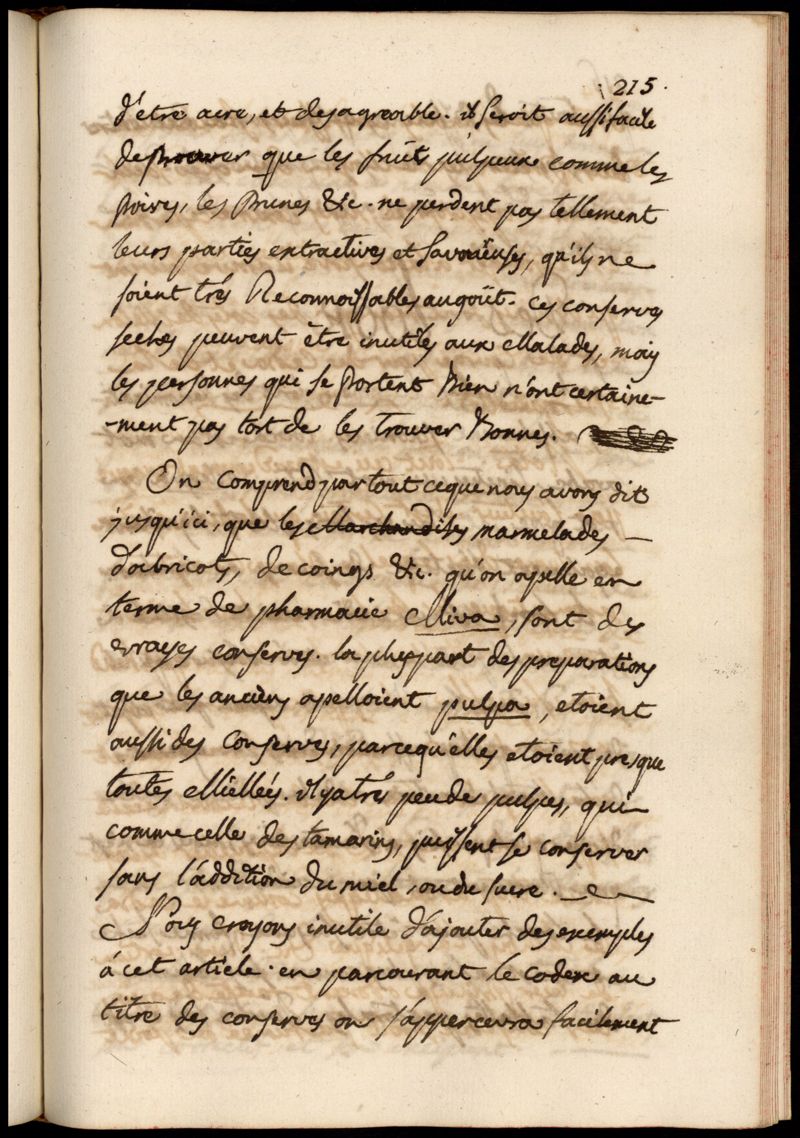 215.
d'etre acre, et desagreable. il seroit aussi facile
de prouver que les fruits pulpeux comme les
poires, les Prunes &c. ne perdent pas tellement
leurs parties extractives et savoneuses, qu'ils ne
soient trés Reconnoissables au goût. ces conserves
seches peuvent être inutiles aux Malades, mais
les personnes qui se portent Bien n'ont certaine-
-ment pas tort de les trouver Bonnes.
On comprend par tout ce que nous avons dit
jusqu'ici, que les Marchandises marmelades
d'abricots, de coings &c. qu'on apelle en
terme de pharmacie Miva, sont des
vrayes conserves. la pluspart des preparations
que les anciens apelloient pulpa, etoient
aussi des conserves, parcequ'elles etoient presque
toutes Miellées. il ya trés peu de pulpes, qui
comme celle des tamarins, puissent se conserver
sans l'addition du miel, ou du sucre.
Nous croyons inutile d'ajouter des exemples
á cet article. en parcourant le codex au
titre des conserves on s'appercevra facilement